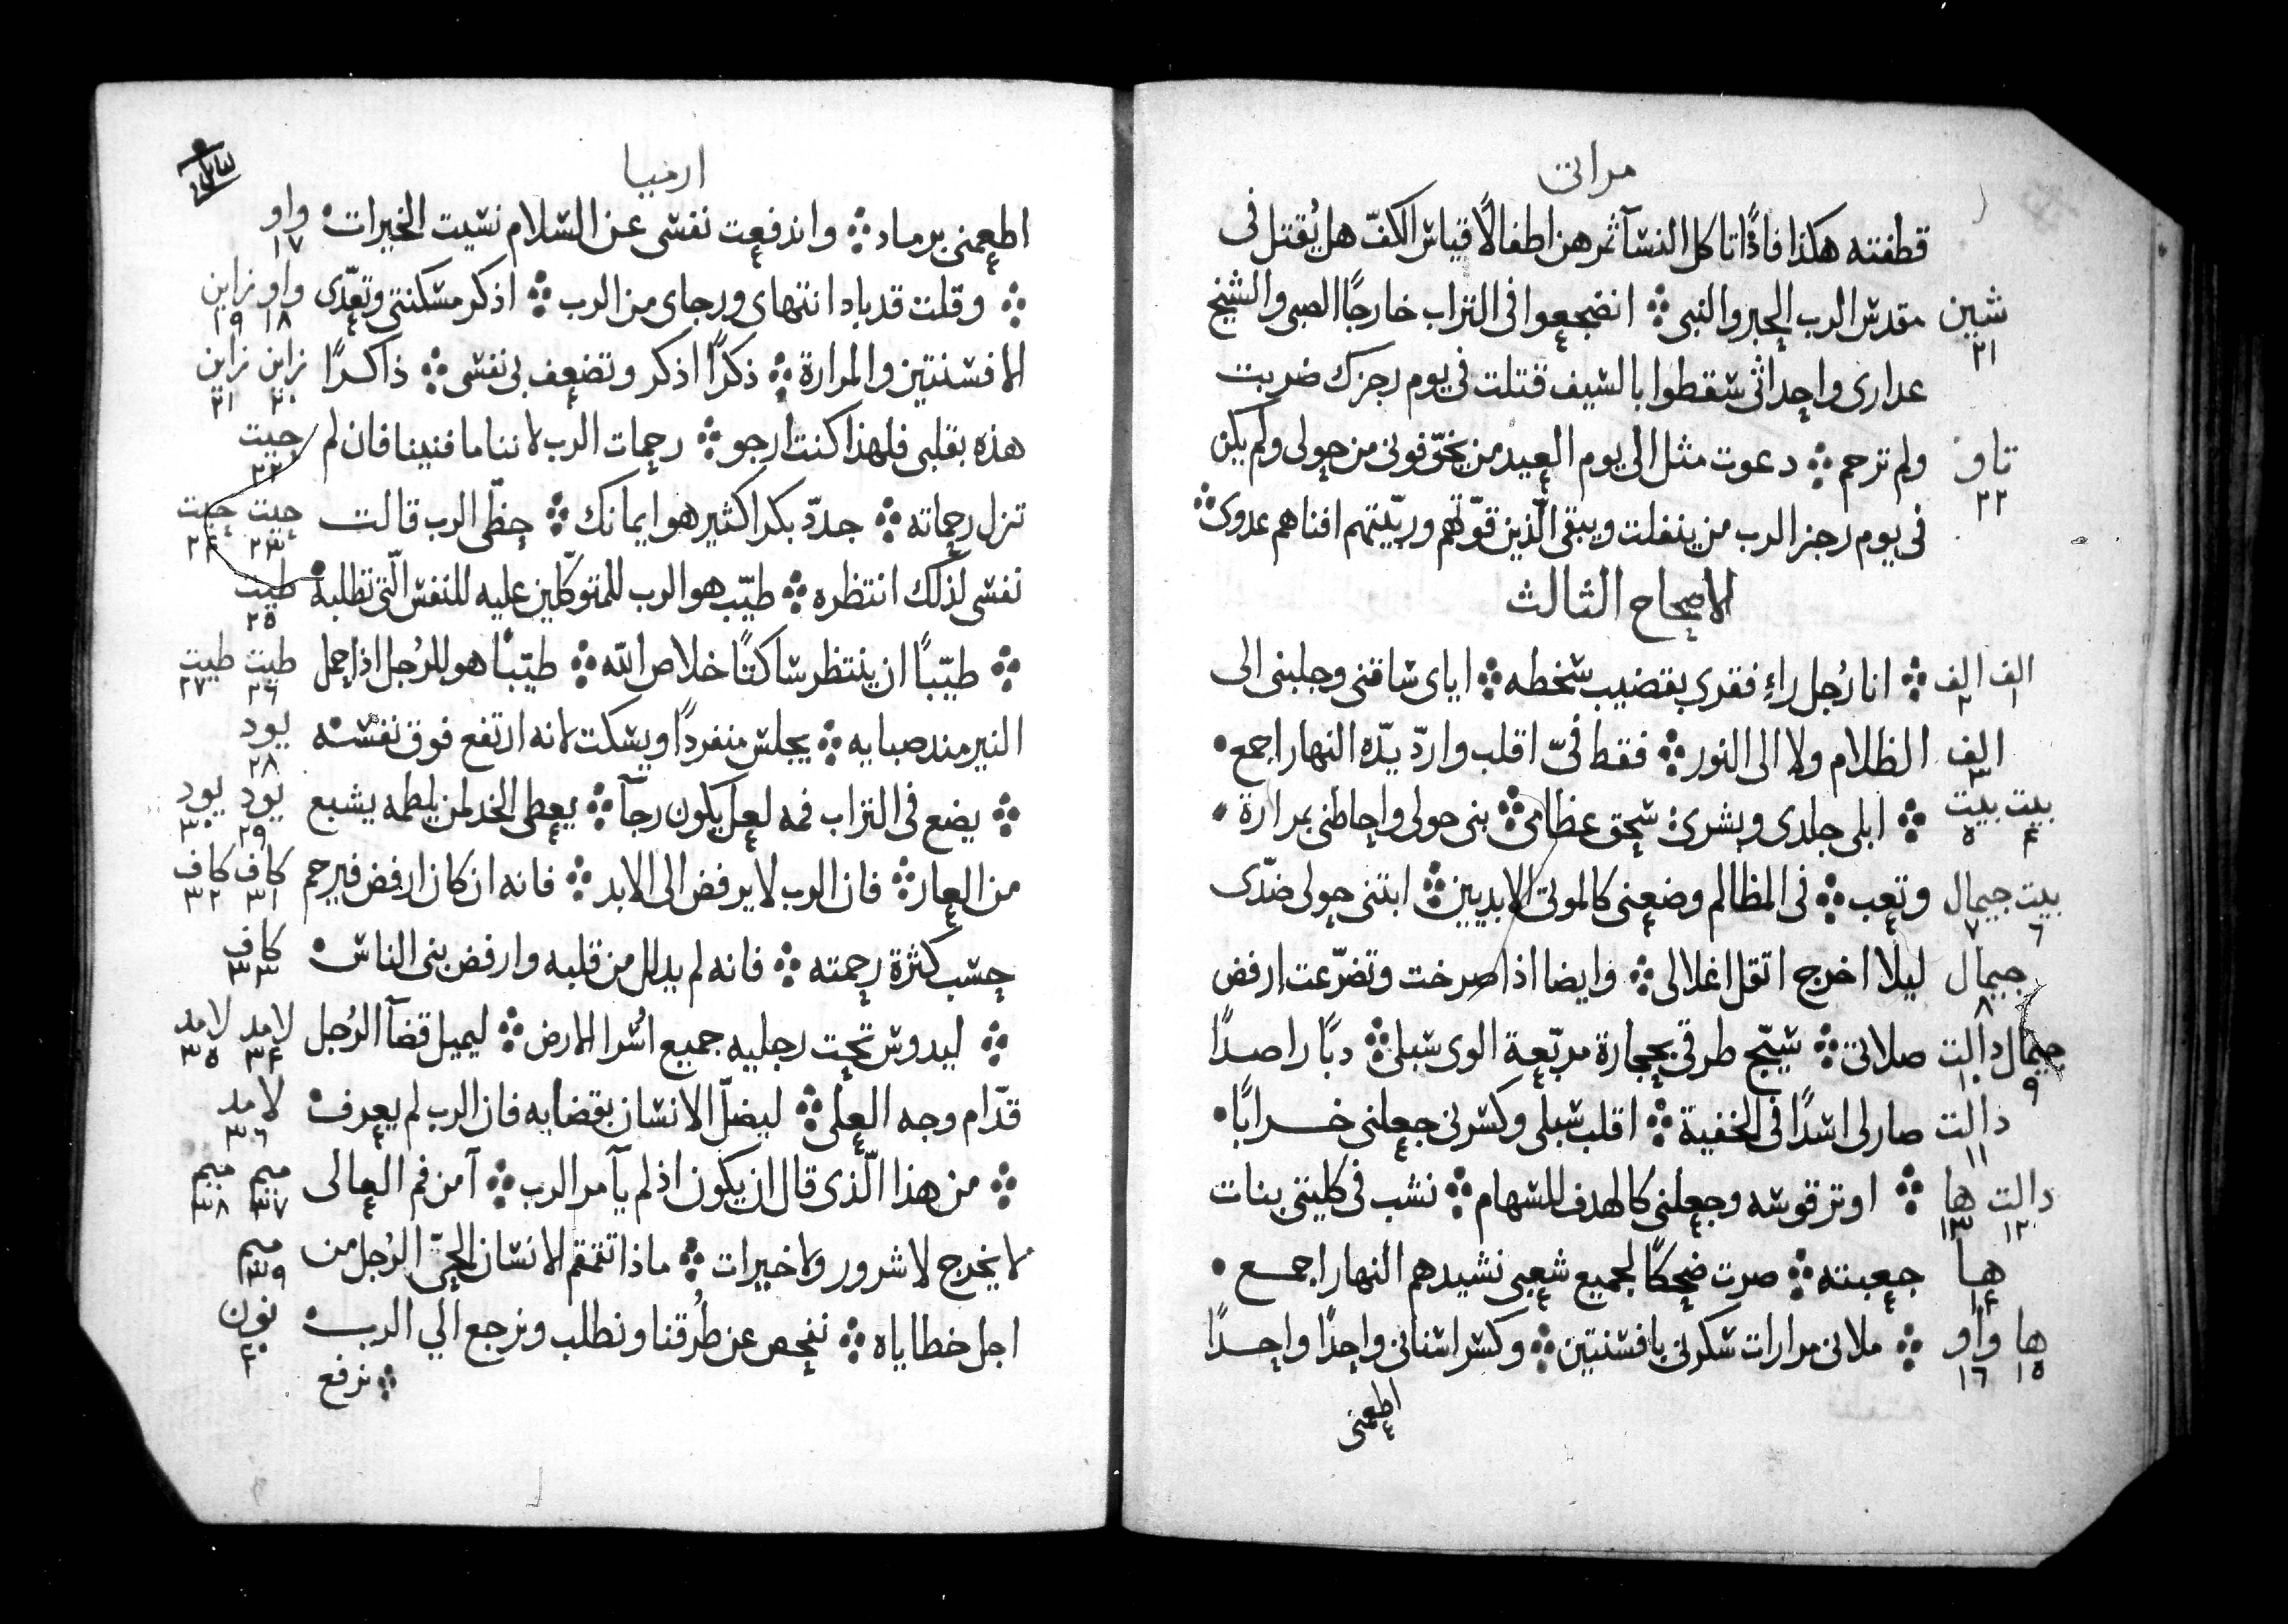 مراثى
قطفته هكذا فاذًا تاكل النسآ ثمرهن اطفالًا قياس الكفّ هل يُقتل فى
شين مقدس الرب الحبر والنبى ܀ انضجعوا فى التراب خارجًا الصبى والشيخ
٢١
عدارى واحداثى سقطوا بالسيف قتلت فى يوم رجزك ضربت
تاو ولم ترحم ܀ دعوت مثل الى يوم العيد من يخوّفونى من حولى ولم يكن
٢٢
فى يوم رجز الرب من ينفلت ويبقى الّذين قوّتهم وربّيتهم افناهم عدوى ܀
الاصحاح الثالث
الف الف ܀ انا رُجل راءِ فقرى بقضيب سخطه ܀ اياى ساقنى وجلبنى الى
١ ٢
الف الظلام ولا الى النور ܀ فقط فىّ اقلب واردّ يدّه النهار اجمع
٣
بيت بيت ܀ ابلى جلدى وبشرى سحق عظامى ܀ بنى حولى واحاطنى بمرارة
٤ ٥
بيت جيمال وتعب ܀ فى المظالم وضعنى كالموتى الابديين ܀ ابتنى حولى ضدّى
٦ ٧
جيمال ليلا اخرج اتقل اغلالى ܀ وايضا اذا صرخت وتضرّعت ارفض
٨
جيمال دالت صلاتى ܀ سيّج طرقى بحجارة مربّعة الوى سبلى ܀ دبًا راصدًا
٩ ١٠
دالت صار لى اسدًا فى الخفية ܀ اقلب سبلى وكسرنى جعلنى خرابًا
١١
دالت ها ܀ اوتر قوسه وجعلنى كالهدف للسهام ܀ نشب فى كليتى بنات
١٢ ١٣
ها جعبته ܀ صرت ضحكًا لجميع شعبى نشيدهم النهار اجمع
١٤
ها واو ܀ ملانى مرارات سكرنى بافسنتين ܀ وكسر اسنانى واحدًا واحدًا
١٥ ١٦
اطعمنى
ارميا
اطعمنى برماد ܀ واندفعت نفسى عن السلام نسيت الخيرات واو
١٧
܀ وقلت قد باد انتهاى ورجاى من الرب ܀ اذكر مسكنتى وتعدّى واو زاين
١٨ ١٩
الافسنتين والمرارة ܀ ذكرًا اذكر وتضعف بى نفسى ܀ ذاكرًا زاين زاين
٢٠ ٢١
هذه بقلبى فلهذا كنت ارجو ܀ رحمات الرب لاننا ما فنينا فان لم حيت
٢٢
تزل رحماته ܀ جدّد بكرا كثير هو ايمانك ܀ حظّى الرب قالت حيت حيت
٢٣ ٢٤
نفسى لذلك انتظره ܀ طيّب هو الرب للمتوكّلين عليه للنفس الّتى تطلبه طيت
٢٥
܀ طيّبًا ان ينتظر ساكتًا خلاص اللّه ܀ طيّبًا هو للرُجل اذا حمل طيت طيت
٢٦ ٢٧
النير مند صبايه ܀ يجلس منفردًا ويسكت لانه ارتفع فوق نفسه يود
٢٨
܀ يضع فى التراب فمه لعل يكون رجآ ܀ يعطى الخد لمن يلطمه يشبع يود يود
٢٩ ٣٠
من العار ܀ فان الرب لا يرفض الى الابد ܀ فانه ان كان ارفض فيرحم كاف كاف
٣١ ٣٢
حسب كثرة رحمته ܀ فانه لم يدلل من قلبه وارفض بنى الناس كاف
٣٣
܀ ليدوس تحت رجليه جميع اسُرا الارض ܀ ليميل قضآ الرُجل لامد لامد
٣٤ ٣٥
قدّام وجه العلى ܀ ليضلّ الانسان بقضايه فان الرب لم يعرف لامد
٣٦
܀ من هذا الّذى قال ان يكون اذ لم يآمر الرب ܀ آمن فم العالى ميم ميم
٣٧ ٣٨
لا يخرج لا شرور ولا خيرات ܀ ماذا تقمقم الانسان الحىّ الرُجل من ميم
٣٩
اجل خطاياه ܀ نفحص عن طُرقنا ونطلب ونرجع الي الرب نون
٤٠
܀ نرفع